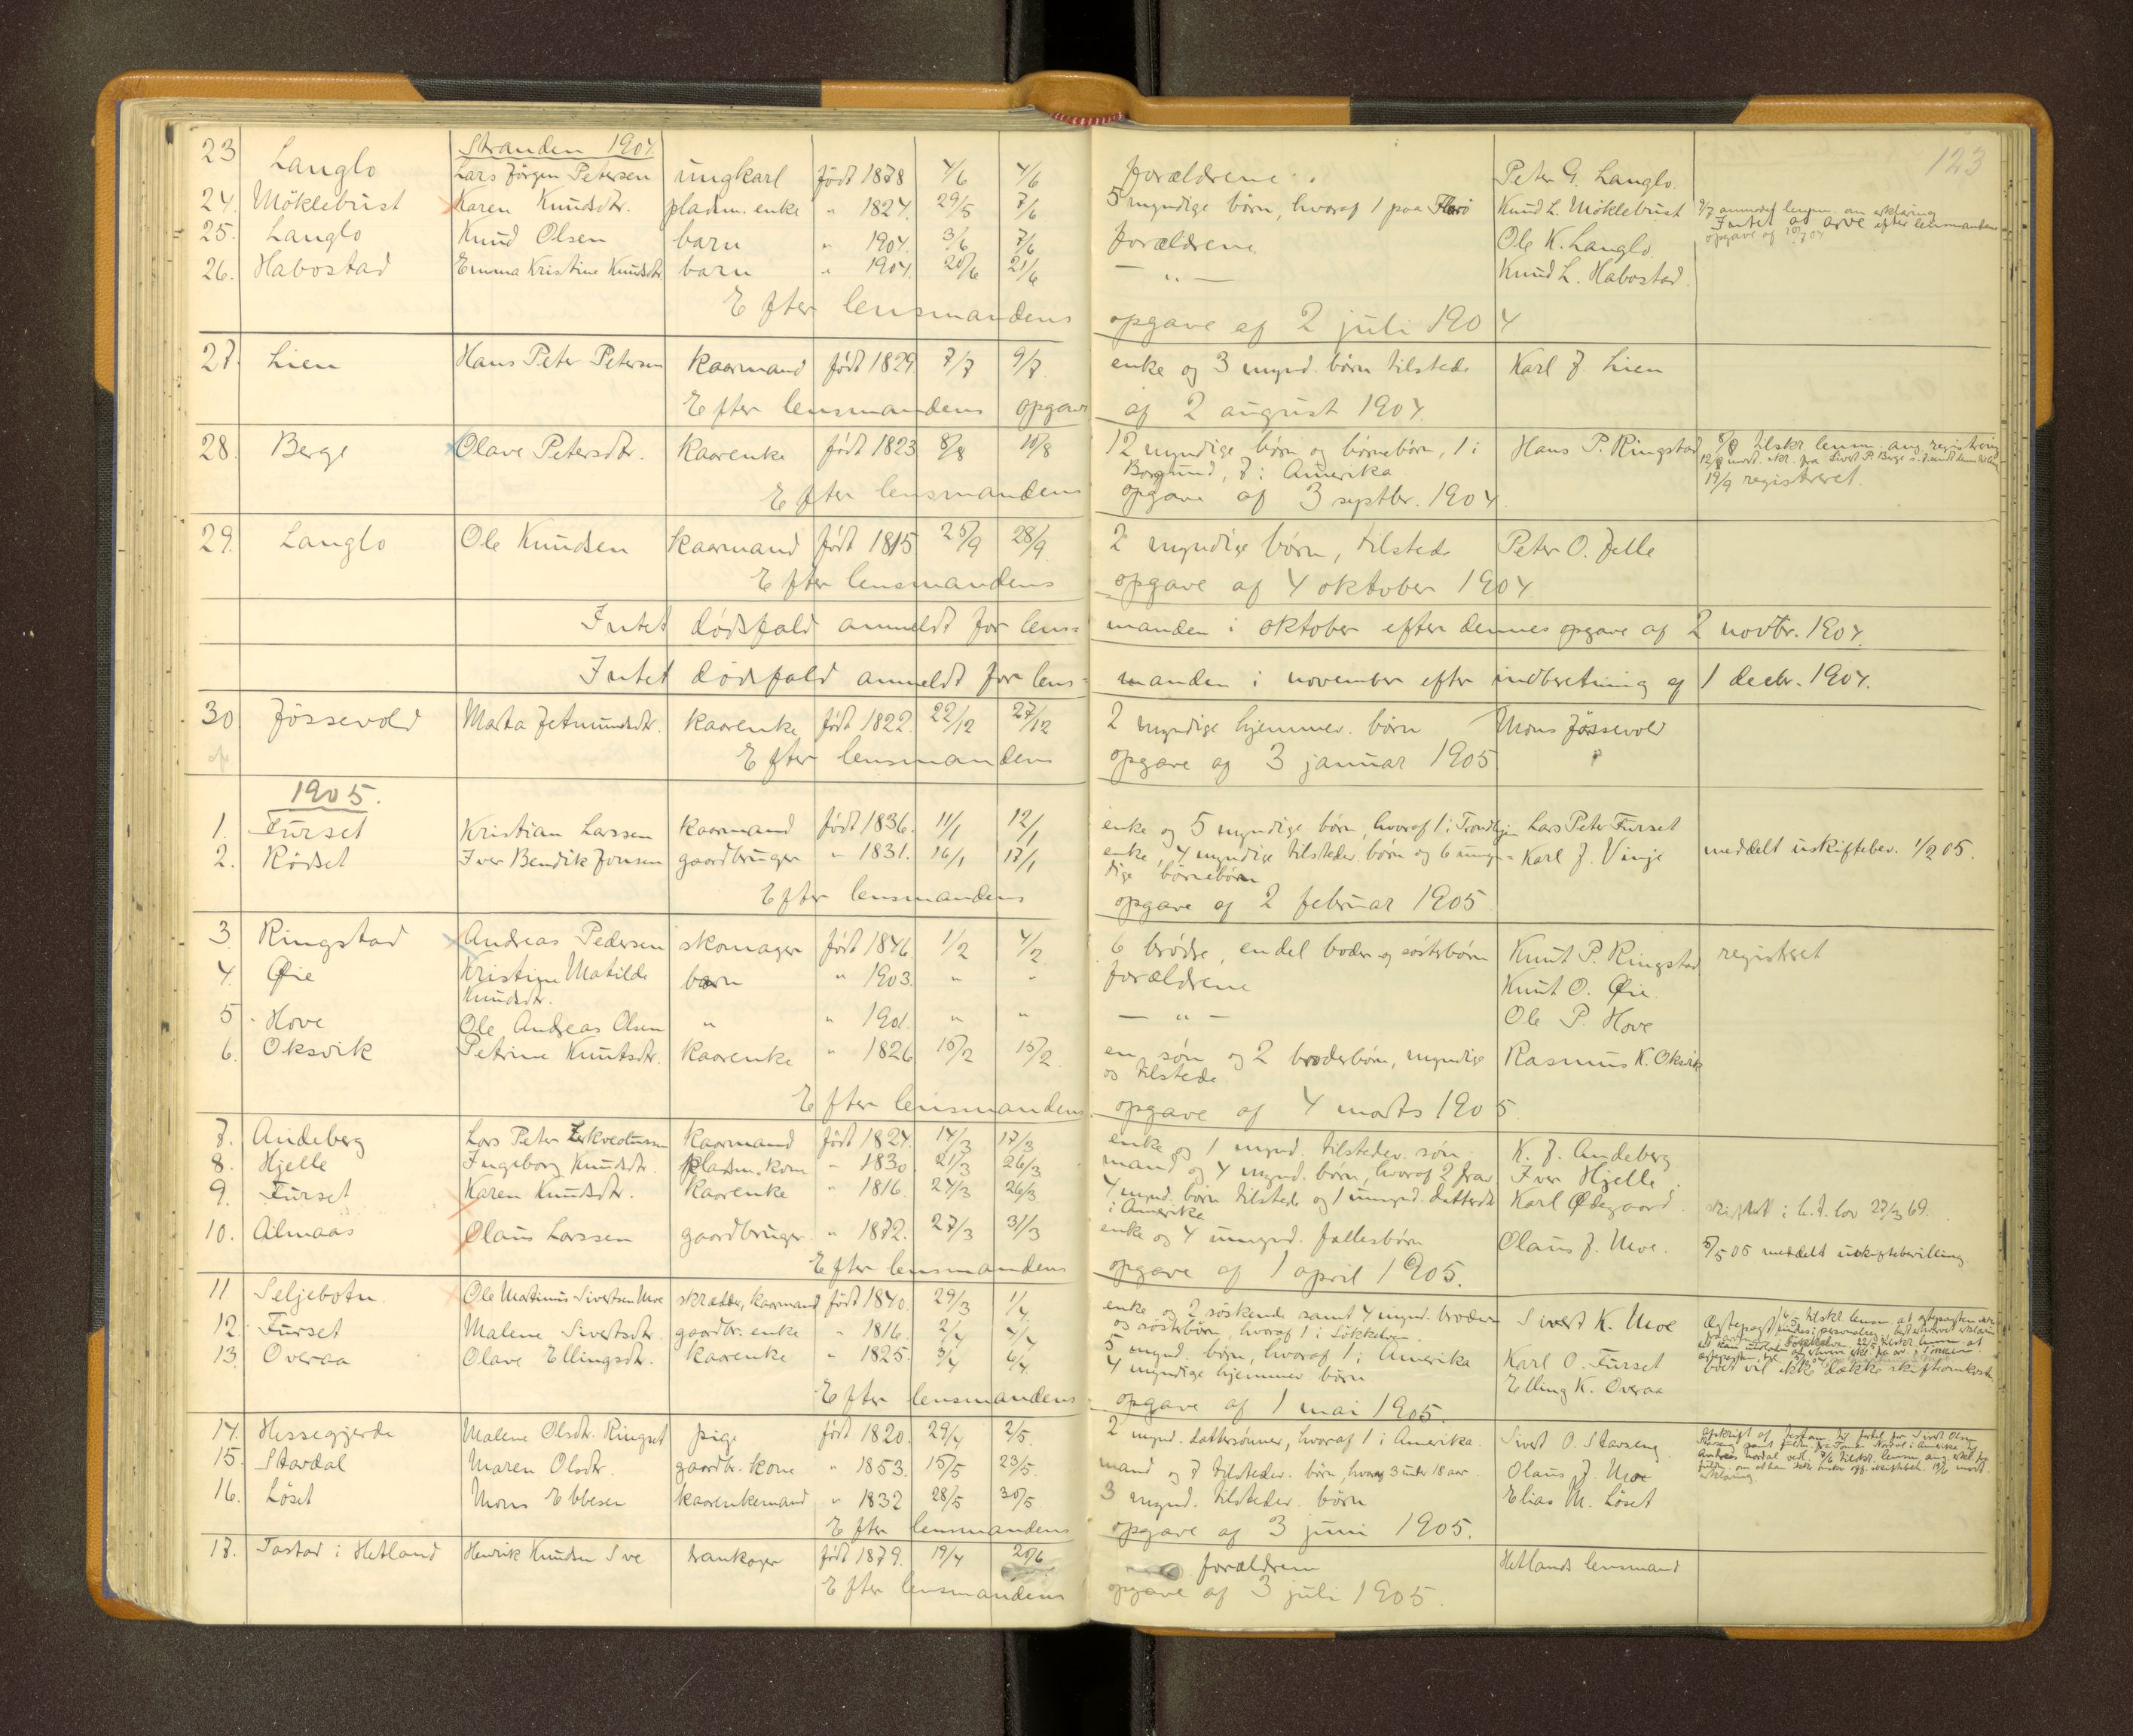 123
Stranden 1904.
23 Langlo Lars Jörgen Petersen ungkarl født 1878 4/6 4/6 forældrene. Peter G. Langlo.
24. Möklebust Karen Knudsdtr. pladsm. enke " 1824. 29/5 7/6 5 myndige børn, hvoraf 1 paa Knud L. Möklebust 9/7 anmodet lensm. om erklæring
Intet at arve efter lensmandens
opgave af 20/7 04
25. Langlo Knud Olsen barn " 1904. 3/6 7/6 forældrene Ole K. Langlo.
26. Habostad Emma Kristine Knudsdtr. barn " 1904. 20/6 21/6 — " — Knud L. Habostad.
Efter lensmandens opgave af 2 juli 1904
27. Lien Hans Peter Petersen kaarmand født 1829. 7/7 9/7. enke og 3 mynd. børn tilstede Karl J. Lien
Efter lensmandens opgave af 2 august 1904.
28. Berge Olave Petersdtr. kaarenke født 1823 8/8 10/8 12 myndige børn og börnebörn, 1 i Hans P. Ringstad 8/9 tilskr. lensm. ang. registrering
Borgund, 7 i Amerika
19/9 registreret.
Efter lensmandens opgave af 3 septbr. 1904
29. Langlo Ole Knudsen kaarmand født 1815 25/9 28/9. 2 myndige børn, tilstede Peter O. Jelle
Efter lensmandens opgave af 4 oktober 1904
Intet dødsfald anmeldt for lens= manden i oktober efter dennes opgave af 2 novbr. 1904.
Intet dødsfald anmeldt for lens= manden i november efter indberetning af 1 decbr. 1904.
30 Jössevold Marta Jetmundsdtr. kaarenke født 1822. 22/12 27/12 2 myndige hjemmev. børn Mons Jössevold
Efter lensmandens opgave af 3 januar 1905
1905.
1. Furset Kristian Larssen kaarmand født 1836. 11/1 12/1 enke og 5 myndige børn, hvoraf 1 i Trondhjem Lars Peter Furset
2. Rödset Iver Bendik Jonsen gaardbruger " 1831. 16/1 17/1 enke, 4 myndige tilstedev. børn og 6 umyn= Karl J. Vinje meddelt uskiftebev. 1/2 05.
dige börnebörn
Efter lensmandens opgave af 2 februar 1905
3. Ringstad Andreas Pedersen skomager født 1846. 1/2 4/2. 6 brödre, endel broder og søsterbørn Knut P. Ringstad registreret
4. Øie Kristine Matilde barn " 1903. " " forældrene Knut O. Øie.
Knudsdtr.
5. Hove Ole Andreas Olsen " " 1901. " " — " — Ole P. Hove
6. Oksvik Petrine Knutsdtr. kaarenke " 1826 15/2 15/2. en søn og 2 broderbørn, myndige Rasmus K. Oksvik
og tilstede
Efter lensmandens opgave af 4 marts 1905
7. Andeberg Lars Peter kaarmand født 1824. 14/3 17/3 enke og 1 mynd. tilstedev. søn K. J. Andeberg
8. Hjelle Ingeborg Knudsdtr. pladsm. kone " 1830. 21/3 26/3 mand og 4 mynd. børn, hvoraf 2 frav. Iver Hjelle.
9. Furset Karen Knudsdtr. kaarenke " 1816. 24/3 26/3 4 mynd. børn tilstede og 1 umynd. datterdtr. Karl Ødegaard. skiftet i h. t. lov 27/3 69.
i Amerika
10. Almaas Olaus Larssen gaardbruger " 1872. 27/3 31/3 enke og 4 umynd. fællesbørn Olaus J. Moe. 5/5 05 meddelt uskiftebevilling
Efter lensmandens opgave af 1 april 1905.
11 Seljebotn Ole Martinus Sivertsen Moe skrædder, kaarmand født 1840. 29/3 1/4 enke og 2 söskende samt 4 mynd. broder Sivert K. Moe
og søsterbørn, hvoraf 1 i
12. Furset Malene Sivertsdtr. gaardbr. enke " 1816. 2/4 4/4 5 mynd. børn, hvoraf 1 i Amerika Karl O. Furset
13. Overaa Olave Ellingsdtr. kaarenke " 1825. 3/4 6/4. 4 myndige hjemmev børn Elling K. Overaa
boet vil ikke dække skifteomkostn.
Efter lensmandens opgave af 1 mai 1905.
14. Hessegjerde Malene Olsdtr. Ringset pige født 1820. 29/4 2/5. 2 mynd. dattersønner, hvoraf 1 i Amerika. Sivert O. Stavseng.
15. Stavdal Maren Olsdtr. gaardbr. kone " 1853. 15/5 23/5. mand og 7 tilstedev. børn, hvoraf 3 under 18 aar Olaus J. Moe
erklæring.
16. Löset Mons Ebbesen kaarenkemand " 1832 28/5 30/5 3 mynd. tilstedev. børn Elias M. Löset
Efter lensmandens opgave af 3 juni 1905.
17. Tastad i Hetland Henrik Knudsen Sve trankoger født 1879. 19/4 20/6 forældrene Hetlands lensmand
Efter lensmandens opgave af 3 juli 1905.